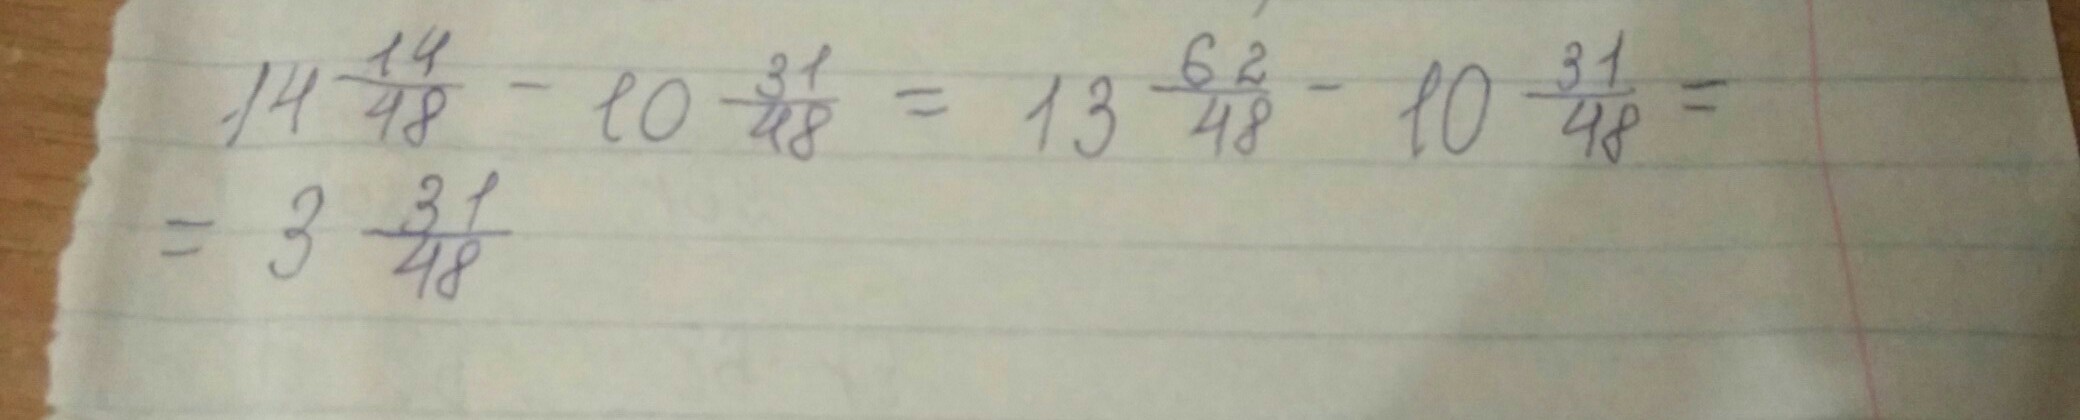 14 14/48 - 10 31/48 = 13 62/48 - 10 31/48 =
= 3 31/48